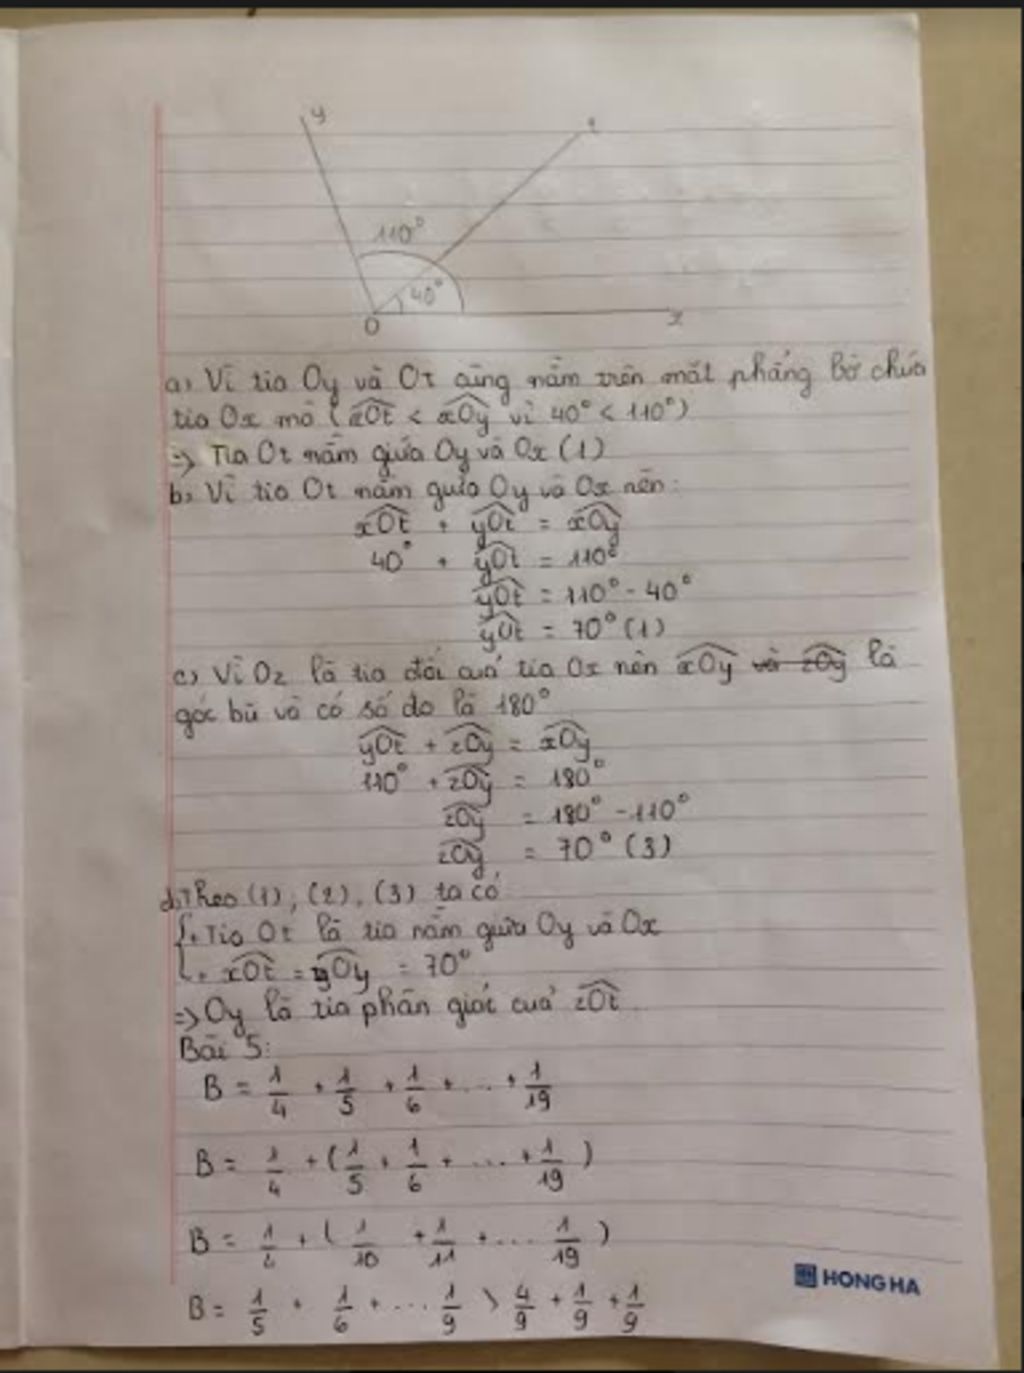 y
t
110°
40°
O
x
a, Vì tia Oy và Ot cùng nằm trên mặt phẳng bờ chứa
tia Ox mà (xOt < xOy vì 40° < 110°)
=> Tia Ot nằm giữa Oy và Ox (1)
b, Vì tia Ot nằm giữa Oy và Ox nên:
xOt + yOt = xOy
40° + yOt = 110°
yOt = 110° - 40°
yOt = 70° (1)
c, Vì Oz là tia đối của tia Ox nên xOy và zOy là
góc bù và có số đo là 180°
yOt + zOy = xOy
110° + zOy = 180°
zOy = 180° - 110°
zOy = 70° (3)
d, Theo (1), (2), (3) ta có
{ + Tia Ot là tia nằm giữa Oy và Ox
+ xOt = yOy = 70°
=> Oy là tia phân giác của zOt.
Bài 5:
B = 1/4 + 1/5 + 1/6 + ... + 1/19
B = 1/4 + (1/5 + 1/6 + ... + 1/19)
B = 1/4 + (1/10 + 1/11 + ... 1/19)
B = 1/5 + 1/6 + ... 1/9 > 4/9 + 1/9 + 1/9
HONG HA